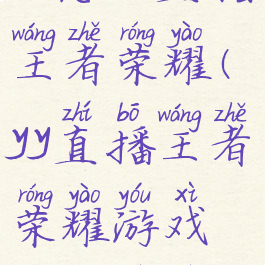 wáng zhě róng yào
王者荣耀(
zhí bō wáng zhě
yy直播王者
róng yào yóu xì
荣耀游戏